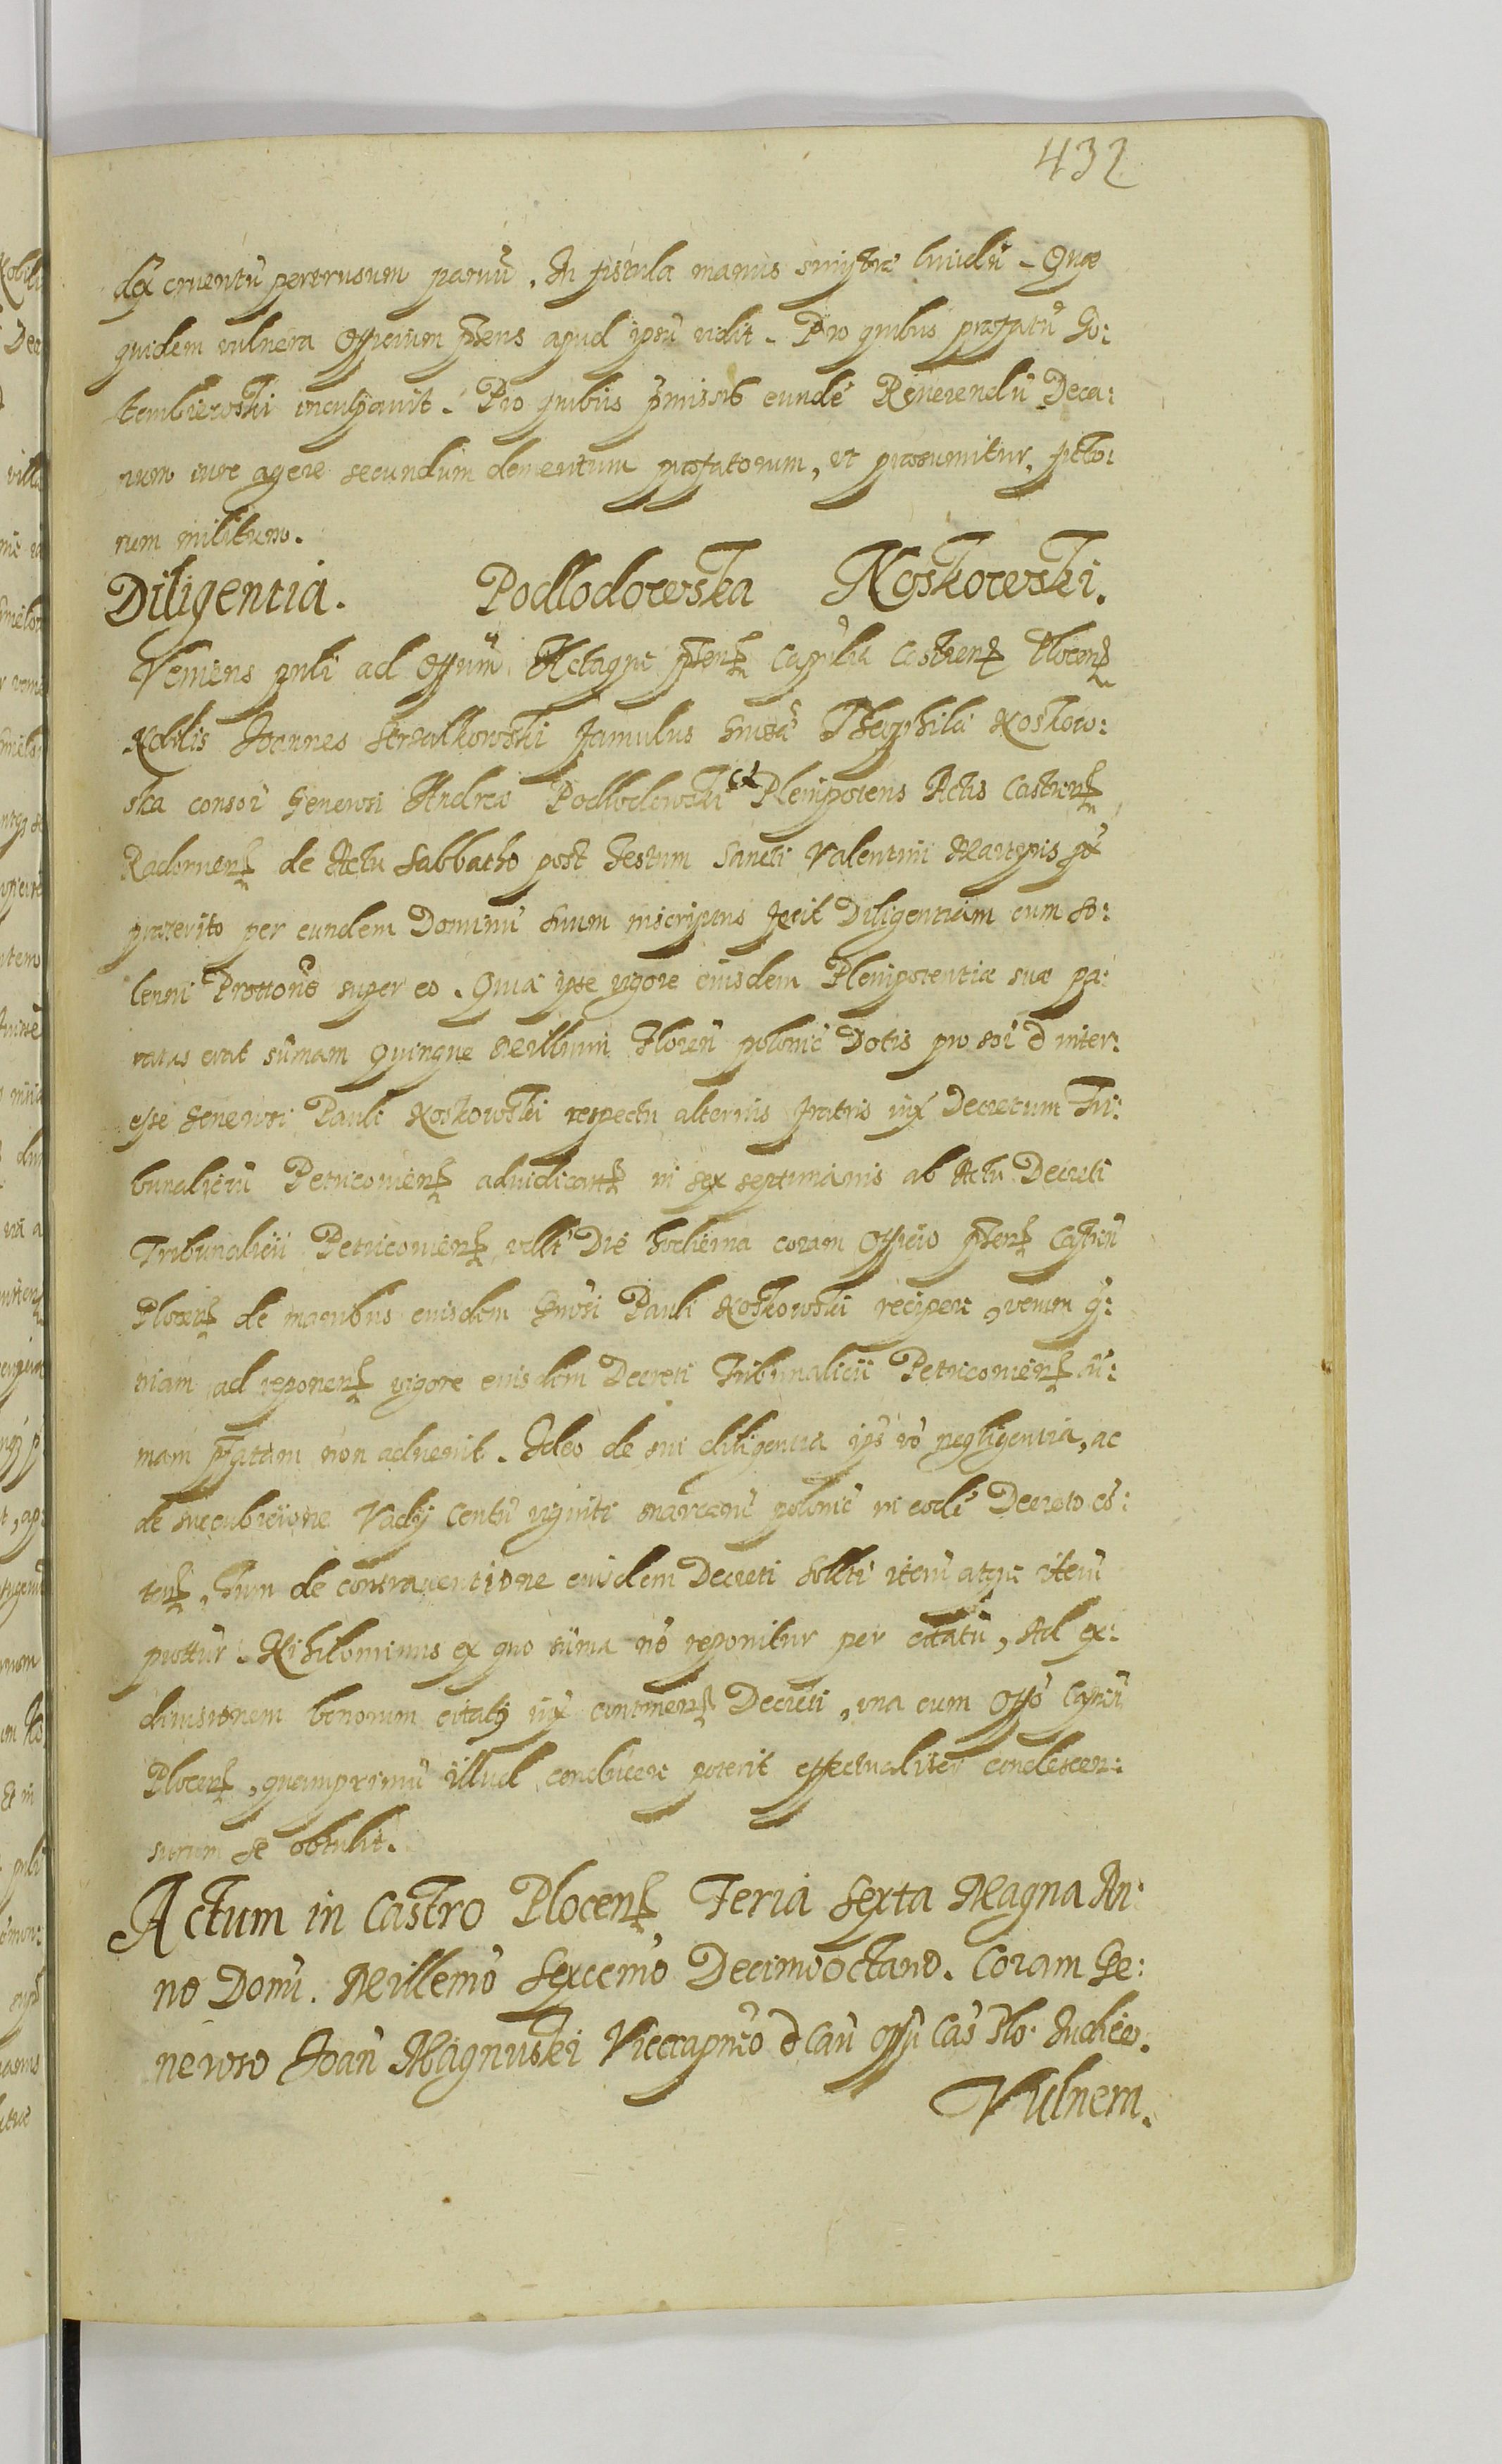 432
dex cruentu pertrusum paruu. In fistula manus sinistre liuidu - Quae
quidem vulnera Officium pñs apud ipsu vidit - Pro quibus praefatu Go:
tembiewski inculpauit. Pro quibus pmissis eunde Reuerendu Deca:
num iure agere secundum dementum praefatorum, ut praesumitur, ficto:
rum militum.
Diligentia. Podlodowska Noskowski.
Veniens puli ad Offum Actaque pñtens Caplia Castrens Plocens
Nobilis Joannes Strzalkowski famulus Gnsa Theophila Noskow:
ska consor Generosi Andreae Podlodowski et Plenipotens Actis Castrens
Radomiens de Actu Sabbatho post festum Sancti Valentini Martyris
praeterito per eundem Dominu suum inscriptus fecit Diligentiam cum so:
lenni Prottone super eo. Quia ipse vigore eiusdem Plenipotentiae suae pa:
ratus erat sumam Quinque Millium Floren polonic Dotis pro sui d inter:
esse Generosi Pauli Noskowski respectu alterius fratris iux Decretum Tri:
bunaliciu Petricouiens adiudicatt in sex septimanis ab Actu Decreti
Tribunalicii Petricouiens vellt Die hodierna coram Officio pñtens Castrii
Plocens de manibus eiusdem Gnosi Pauli Noskowski recipere, verum q:
niam ad reponen vigore eiusdem Decreti Tribunalicii Petricouiens su:
mam pfatam non aduenit. Ideo de sui diligentia ips vo negligentia, ac
de succubicione Vadij Centu viginti marcaru polonic in eode Decreto co:
tens, Tum de contrauentione eiusdem Decreti Sollti iteru atque iteru
prottur. Nihilominus ex quo suma no reponitur per citatu, Ad ex:
diuisionem bonorum citati iux continens Decreti, una cum Offo Capnii
Plocens, quamprimu illud conducere poterit effectualiter condescen:
surum se obtulit.
Actum in Castro Plocens Feria Sexta Magna An:
no Domi. Millemo Sexcemo Decimooctauo. Coram Ge:
neroso Joan Magnuski Vicecapneo d Cau Offi Cas Plo. Judice.
Vulnera.